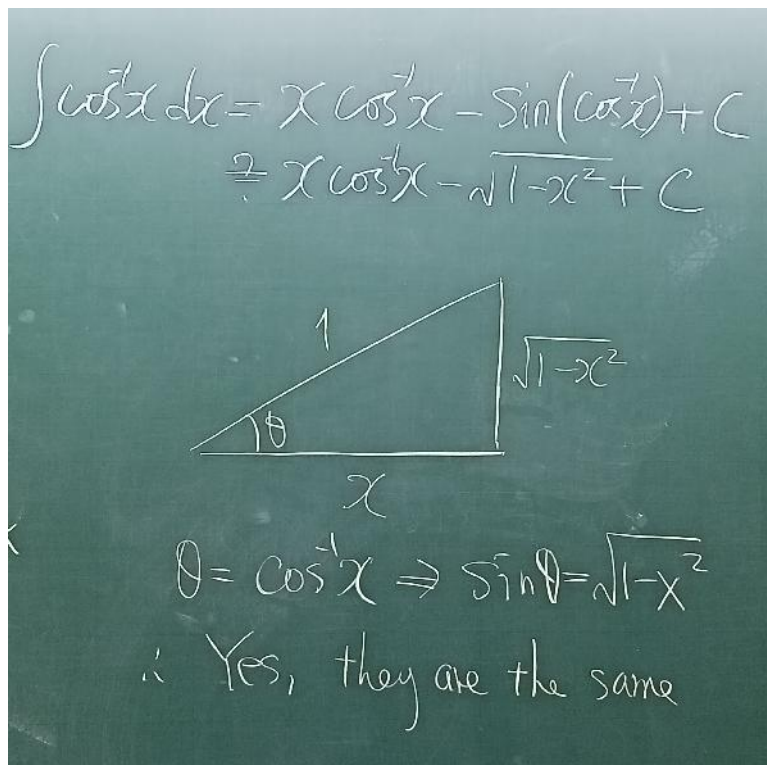 ∫cos⁻¹x dx = x cos⁻¹x - sin(cos⁻¹x) + C
≟ x cos⁻¹x - √(1-x²) + C
1
√(1-x²)
θ
x
θ = cos⁻¹x ⇒ sinθ = √(1-x²)
∴ Yes, they are the same